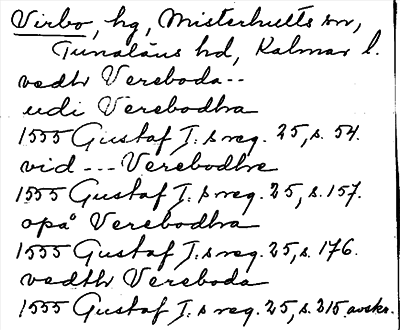 Virbo, hg, Misterhults sn,
Tunaläns hd, Kalmar l.
vedhr Vereboda--
udi Verebodha
1555 Gustaf I:s reg. 25, s. 54.
vid --- Verebodhe
1555 Gustaf I:s reg. 25, s. 157.
opå Verebodha
1555 Gustaf I:s reg. 25, s. 176.
vedhr Vereboda
1555 Gustaf I:s reg. 25, s. 215 avskr.